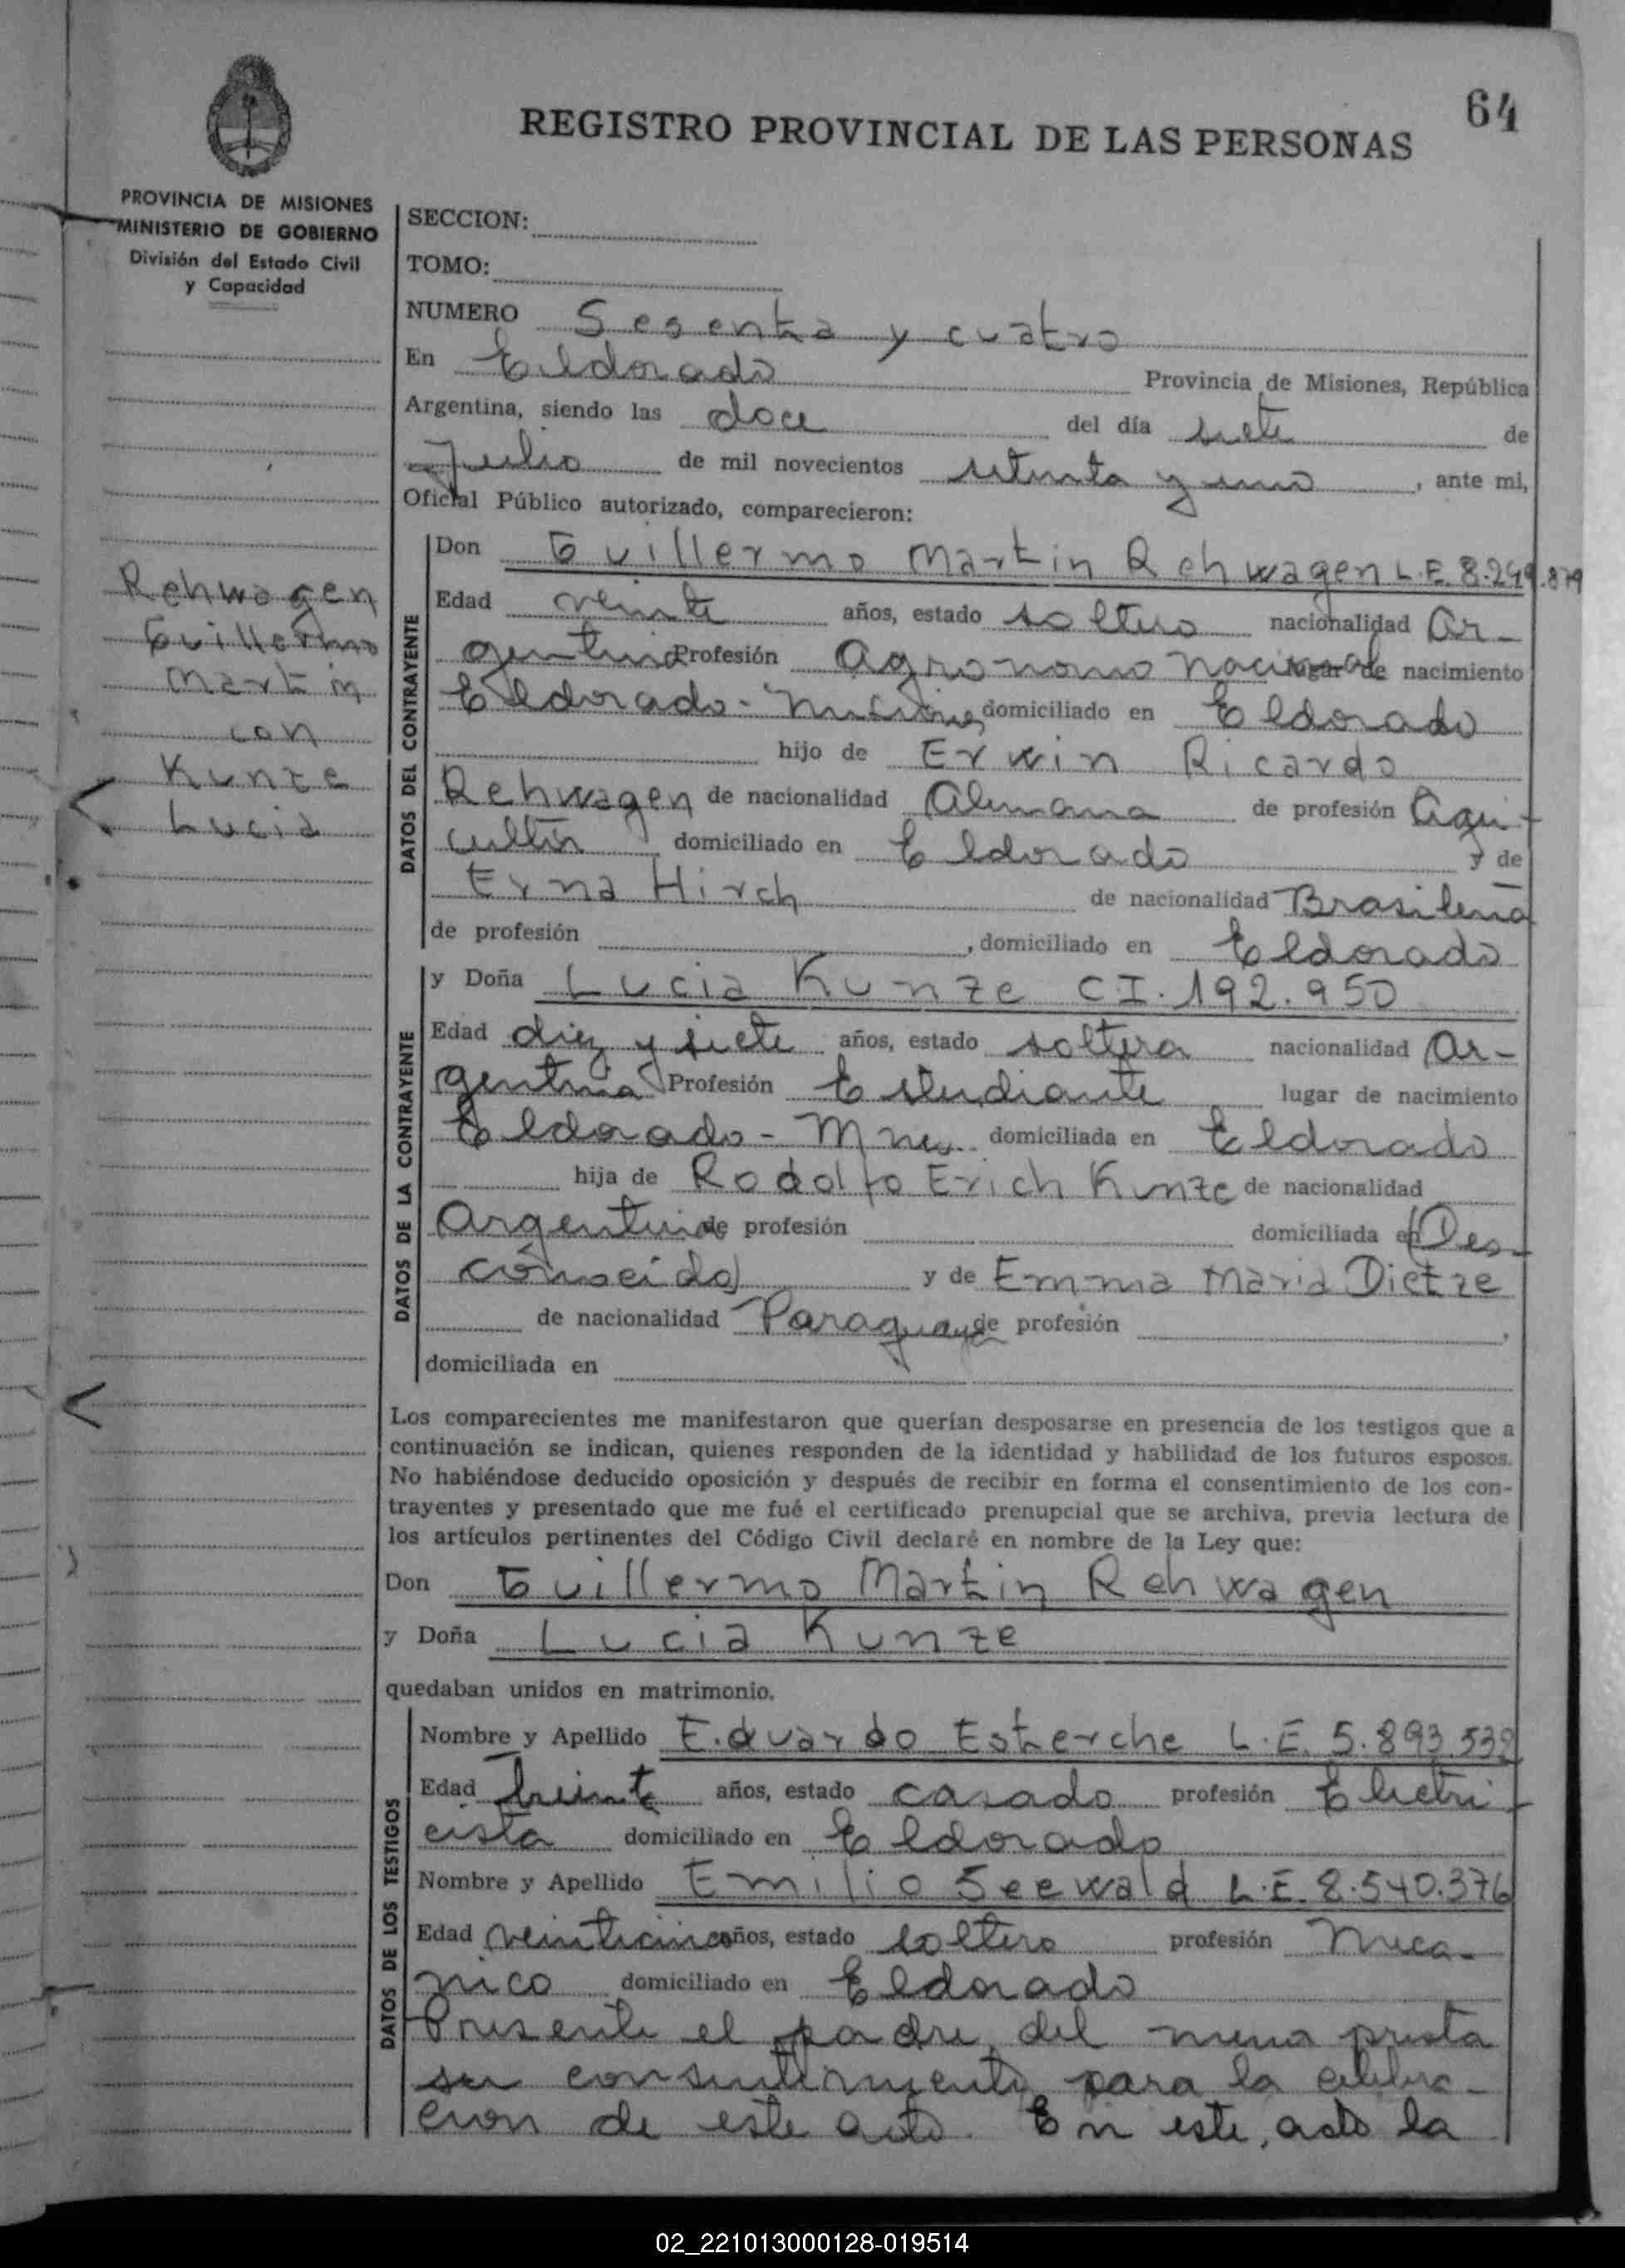 64
REGISTRO PROVINCIAL DE LAS PERSONAS
PROVINCIA DE MISIONES
MINISTERIO DE GOBIERNO
División del Estado Civil
y Capacidad
SECCION:
TOMO:
NUMERO Sesenta y cuatro
En Eldorado Provincia de Misiones, República
Argentina, siendo las doce del día siete de
Julio de mil novecientos setenta y uno, ante mi,
Oficial Público autorizado, comparecieron:
Rehwagen
Guillermo
Martin
con
Kunze
Lucia
DATOS DEL CONTRAYENTE
Don Guillermo Martin Rehwagen L.E. 8.249.879
Edad veinte años, estado soltero nacionalidad Ar-
gentina Profesión Agronomo Nacional lugar de nacimiento
Eldorado - Misiones domiciliado en Eldorado
hijo de Erwin Ricardo
Rehwagen de nacionalidad Alemana de profesión Agri-
cultor domiciliado en Eldorado y de
Erna Hirch de nacionalidad Brasileña
de profesión , domiciliado en Eldorado
DATOS DE LA CONTRAYENTE
y Doña Lucia Kunze C.I. 192.950
Edad diez y siete años, estado soltera nacionalidad Ar-
gentina Profesión Estudiante lugar de nacimiento
Eldorado - Mnes. domiciliada en Eldorado
hija de Rodolfo Erich Kunze de nacionalidad
Argentina de profesión domiciliada en (Des-
conocido) y de Emma Maria Dietze
de nacionalidad Paraguaya de profesión ,
domiciliada en
Los comparecientes me manifestaron que querían desposarse en presencia de los testigos que a
continuación se indican, quienes responden de la identidad y habilidad de los futuros esposos.
No habiéndose deducido oposición y después de recibir en forma el consentimiento de los con-
trayentes y presentado que me fué el certificado prenupcial que se archiva, previa lectura de
los artículos pertinentes del Código Civil declaré en nombre de la Ley que:
Don Guillermo Martin Rehwagen
y Doña Lucia Kunze
quedaban unidos en matrimonio.
DATOS DE LOS TESTIGOS
Nombre y Apellido Eduardo Esterche L.E. 5.893.532
Edad treinta años, estado casado profesión Electri-
cista domiciliado en Eldorado
Nombre y Apellido Emilio Seewald L.E. 8.540.376
Edad veinticinco años, estado soltero profesión Meca-
nico domiciliado en Eldorado
Presente el padre del menor presta
su consentimiento para la celebra-
cion de este acto. En este acto la
02_221013000128-019514